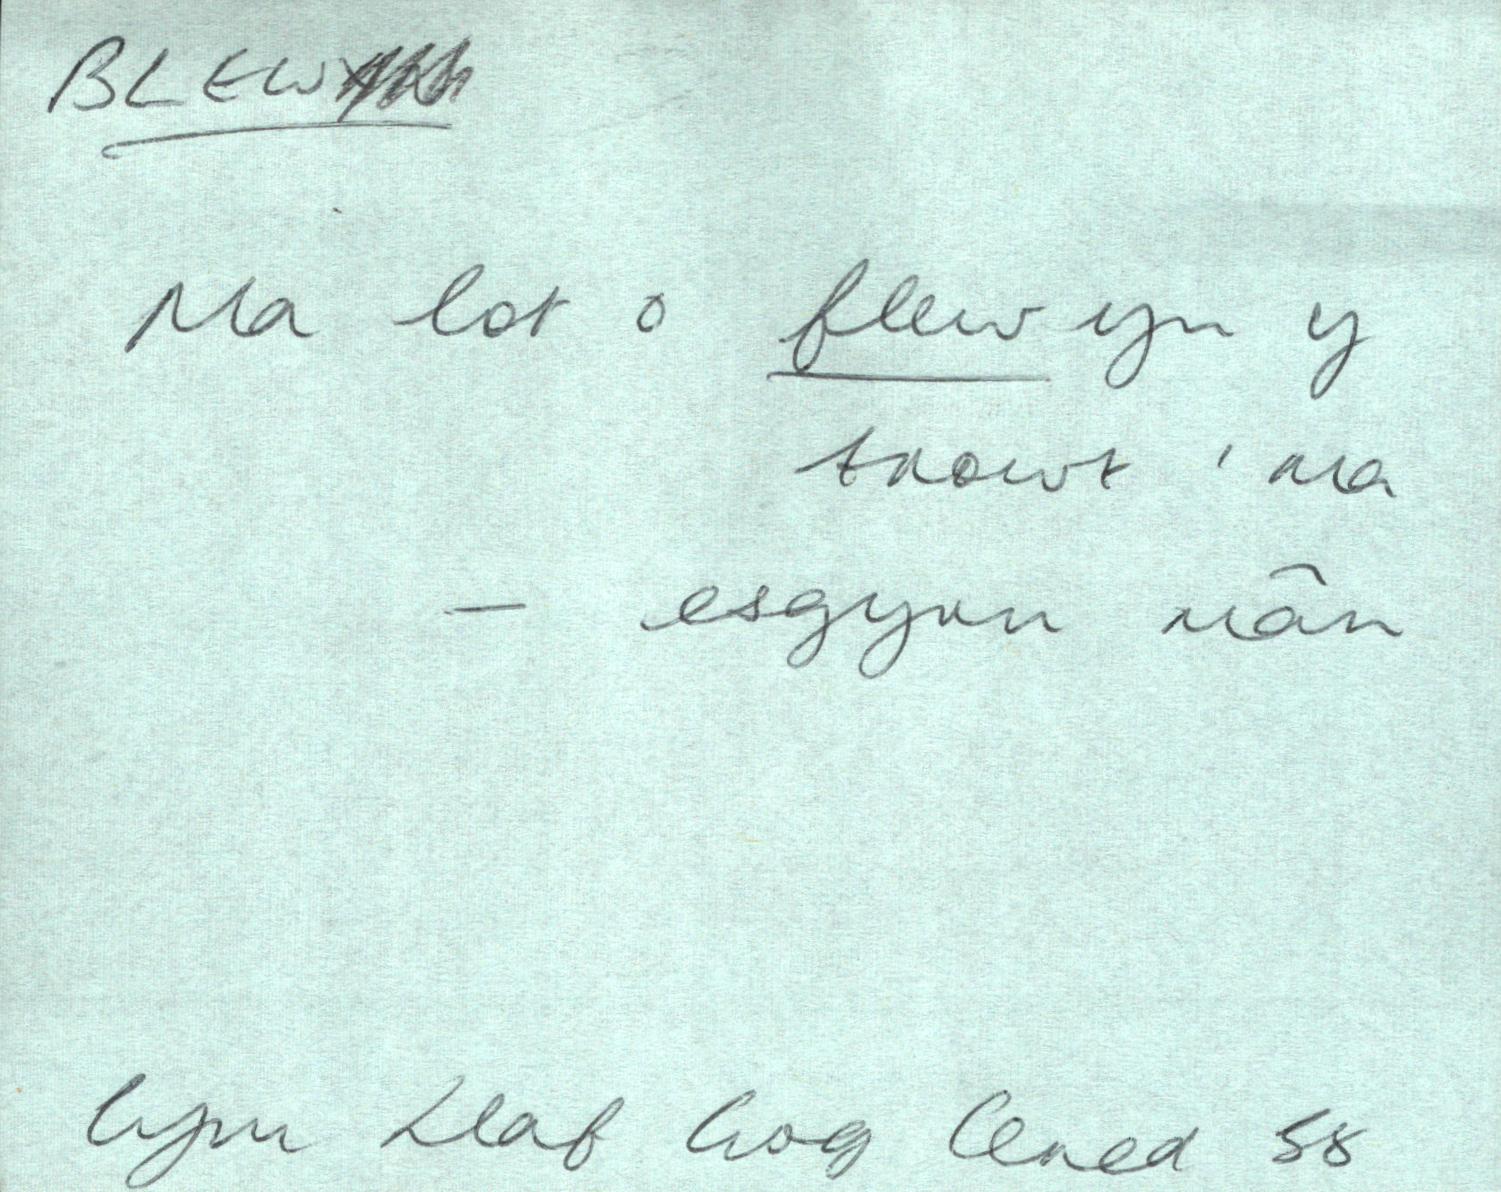 BLEW
Ma lot o flew yn y
trowt 'ma
– esgyrn mân
Cym Llaf Grog Cered 58